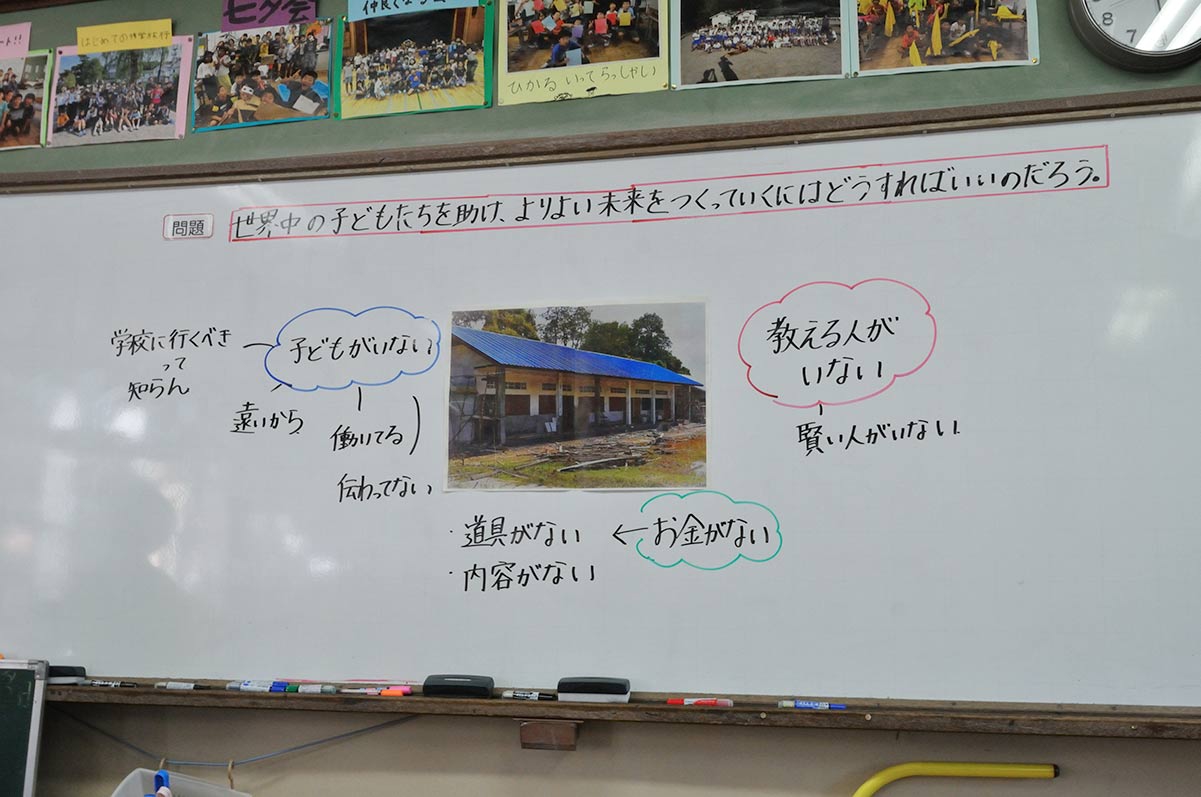 はじめての修学旅行
七夕会
ひかる いってらっしゃい
8
7
問題
世界中の子どもたちを助け、よりよい未来をつくっていくにはどうすればいいのだろう。
学校に行くべき
って
知らん
子どもがいない
遠いから
働いてる
伝わってない
教える人が
いない
賢い人がいない
お金がない
・道具がない
・内容がない